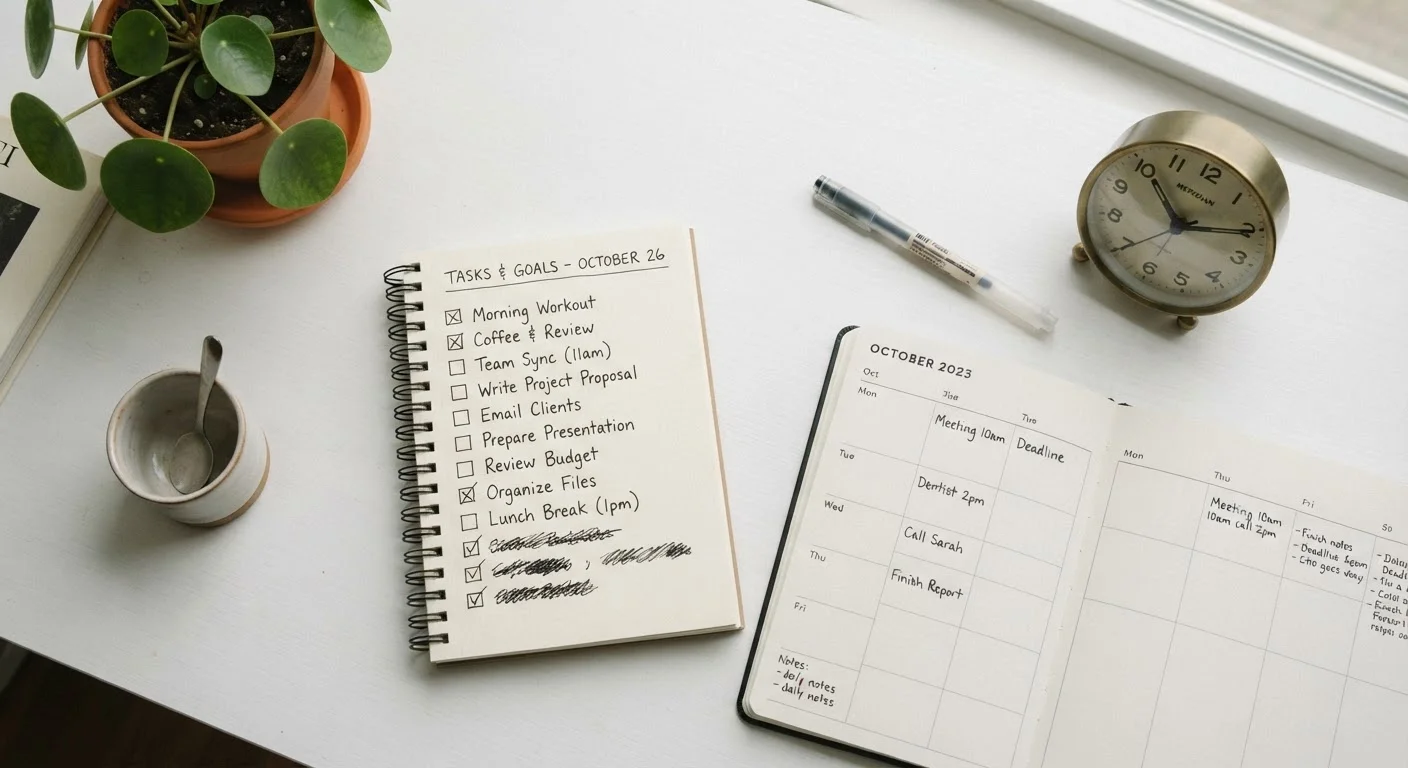 TASKS & GOALS – OCTOBER 26
Morning Workout
Coffee & Review
Team Sync (11am)
Write Project Proposal
Email Clients
Prepare Presentation
Review Budget
Organize Files
Lunch Break (1pm)
11 12
10 1
MERIDIAN
9 2
8 3
7 4
6 5
OCTOBER 2023
Oct
Mon
Meeting 10am
Deadline
Tue
Dentist 2pm
Wed
Call Sarah
Thu
Finish Report
Fri
Notes:
- daily notes
Mon
Thu
Fri
So
Meeting 10am
10am call 2pm
notes